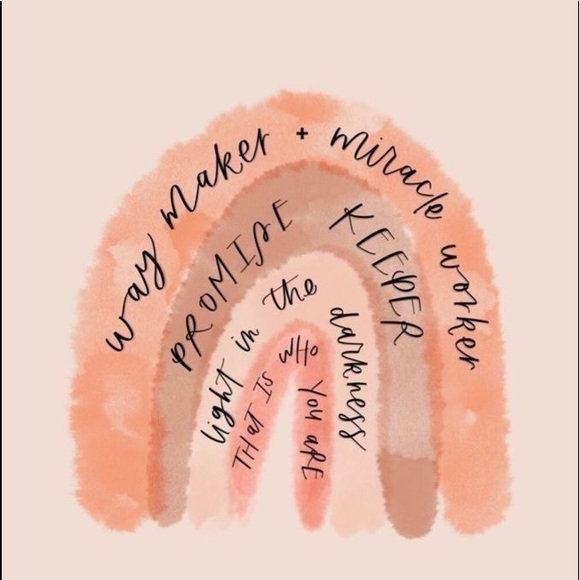 way maker + miracle worker
PROMISE KEEPER
light in the darkness
THAT IS WHO YOU ARE